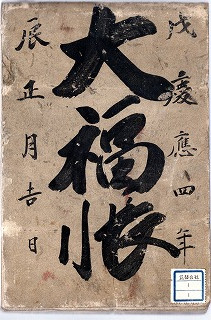 戊慶應四年
大福帳
辰正月吉日
1
1